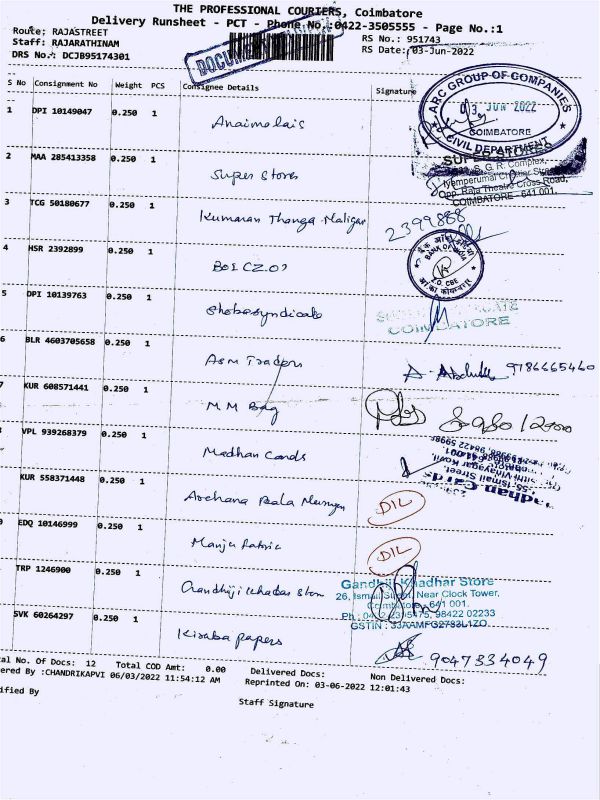 THE PROFESSIONAL COURIERS, Coimbatore
Delivery Runsheet - PCT - Phone No.:0422-3505555 - Page No.:1
Route: RAJASTREET
Staff: RAJARATHINAM
DRS No.: DCJB95174301
RS No.: 951743
RS Date: 03-Jun-2022
S No Consignment No Weight PCS Consignee Details Signature
1 DPI 10149047 0.250 1 Anaimalais
ARC GROUP OF COMPANIES
03 JUN 2022
COIMBATORE
CIVIL DEPARTMENT
2 MAA 285413358 0.250 1 Super Stores
SUPER STORES
S. G. R. Complex,
Opp. Raja Theatre Cross Road,
COIMBATORE - 641 001.
3 TCG 50180677 0.250 1 Kumaran Thanga Maligai
2399888
4 HSR 2392899 0.250 1 BOI CZO
BANK OF INDIA
Z.O. CBE
5 DPI 10139763 0.250 1 Shobasyndicate
COIMBATORE
6 BLR 4603705658 0.250 1 Asm Traders
A. Abdulla 9786665460
KUR 608571441 0.250 1 M M Bag
VPL 939268379 0.250 1 Madhan Cards
55, Ismail Street,
KUR 558371448 0.250 1 Archana Bala
DIL
EDQ 10146999 0.250 1 Manju Fabric
DIL
TRP 1246900 0.250 1 Gandhiji Khadar Store
Gandhiji Khadhar Store
26, Ismail Street, Near Clock Tower,
Coimbatore - 641 001.
98422 02233
GSTIN : 33AAMFG2783L1ZO
SVK 60264297 0.250 1 Kiraba papers
9047334049
al No. Of Docs: 12 Total COD Amt: 0.00 Delivered Docs: Non Delivered Docs:
ered By :CHANDRIKAPVI 06/03/2022 11:54:12 AM Reprinted On: 03-06-2022 12:01:43
ified By
Staff Signature